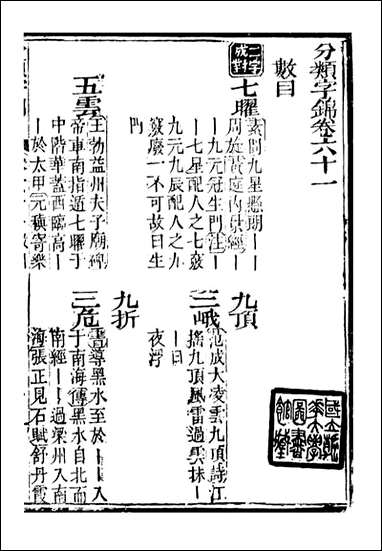 分類字錦卷六十一
數目
二字
成對
七曜
素問九星懸朗丨丨
周旋黃庭內景經丨
丨九元冠生門注丨
丨七星配人之七竅
九元九辰配人之九
竅廢一不可故曰生
門
九頂
三峨
范成大凌雲九頂詩江
搖九頂風雷過雲抹丨
丨日
夜浮
五雲
王勃益州夫子廟碑
帝車南指遁七曜于
中階華蓋西臨高丨
丨於太甲元稹寄樂
九折
三危
書導黑水至於丨丨入
于南海傳黑水自北而
南經丨丨過梁州入南
海張正見石賦舒丹霞